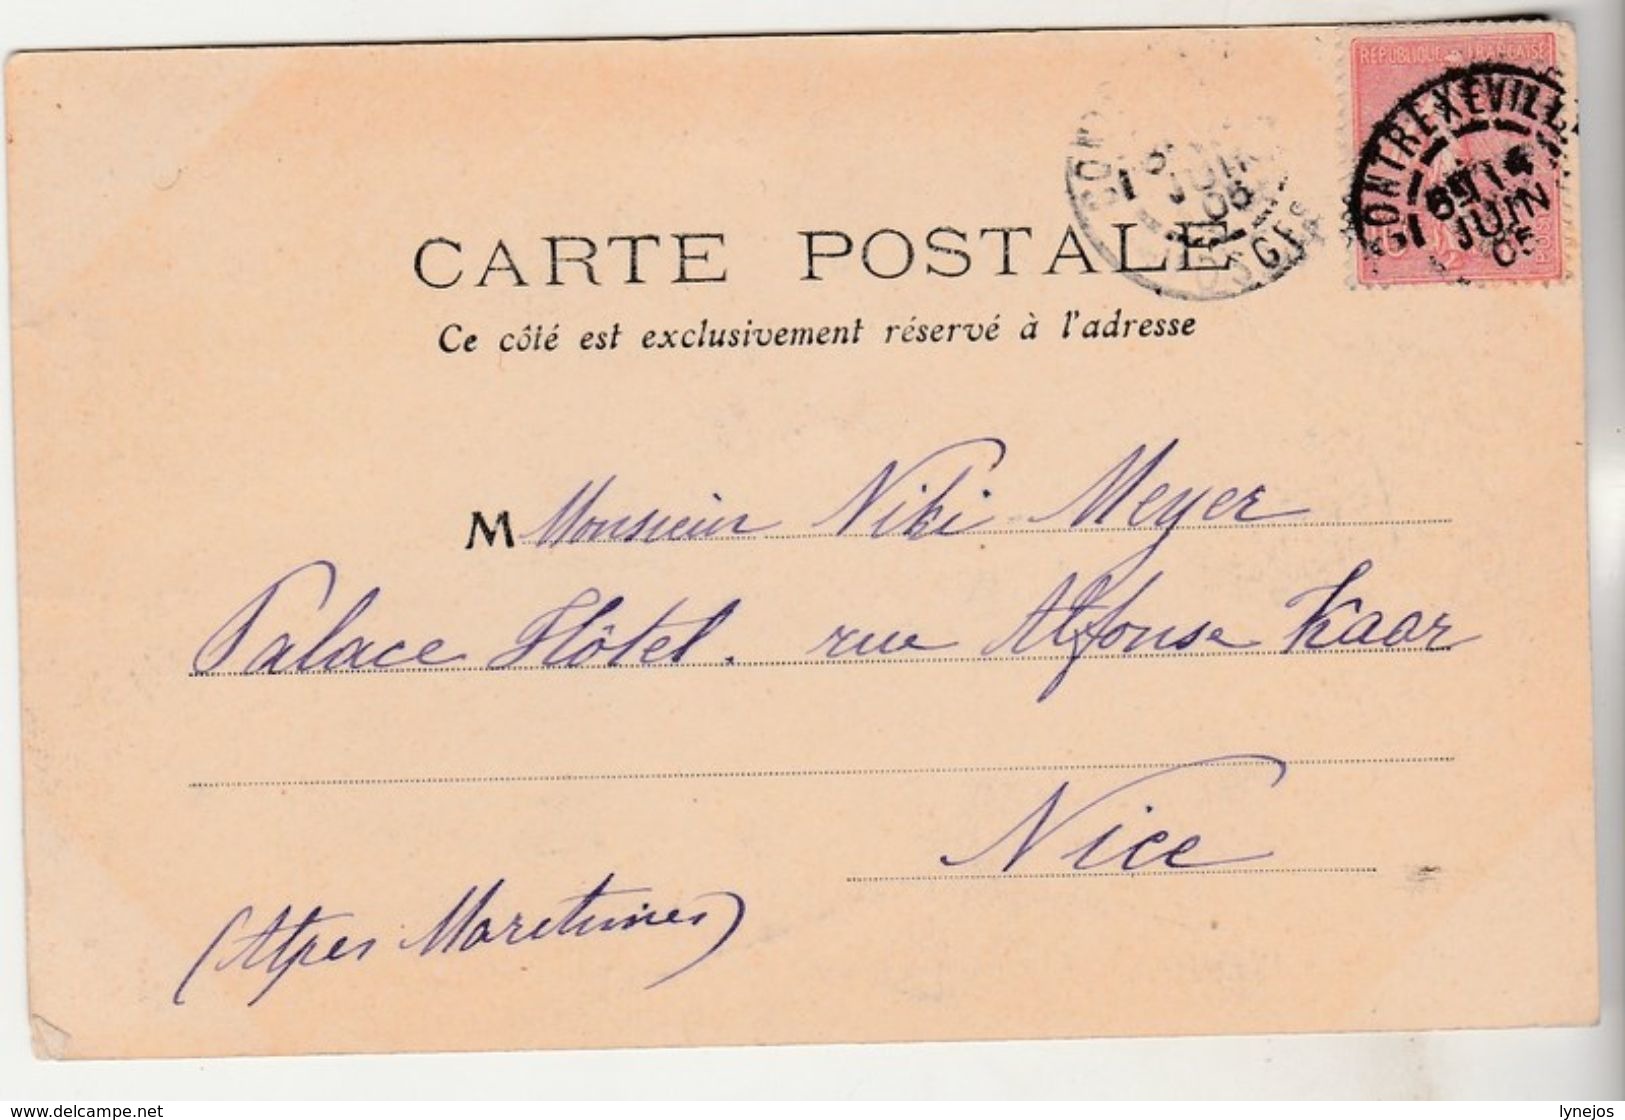 REPUBLIQUE FRANÇAISE
CONTREXEVILLE
JUIN
05
CARTE POSTALE
Ce côté est exclusivement réservé à l'adresse
M Monsieur Niki Meyer
Palace Hôtel. rue Alfonse Kaar
Nice
(Alpes Maretimes)
www.delcampe.net
lynejos